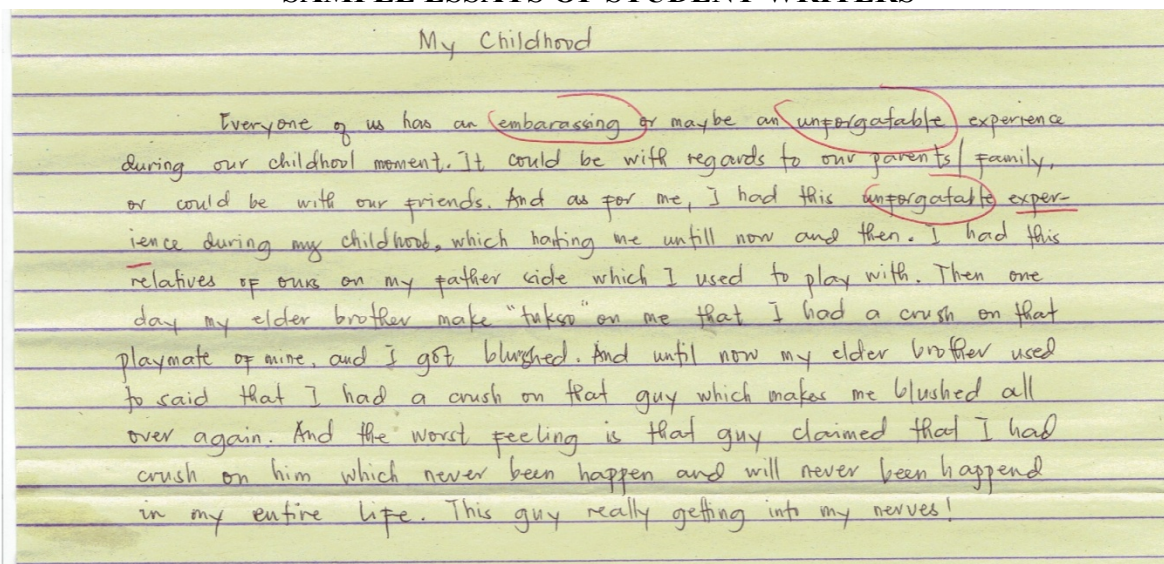 SAMPLE ESSAYS OF STUDENT WRITERS
My Childhood
Everyone of us has an embarassing or maybe an unforgatable experience
during our childhool moment. It could be with regards to our parents / family,
or could be with our friends. And as for me, I had this unforgatable exper-
ience during my childhood, which hating me untill now and then. I had this
relatives of ours on my father side which I used to play with. Then one
day my elder brother make "tukso" on me that I had a crush on that
playmate of mine, and I got blurshed. And until now my elder brother used
to said that I had a crush on that guy which makes me blushed all
over again. And the worst feeling is that guy claimed that I had
crush on him which never been happen and will never been happend
in my entire life. This guy really getting into my nerves!